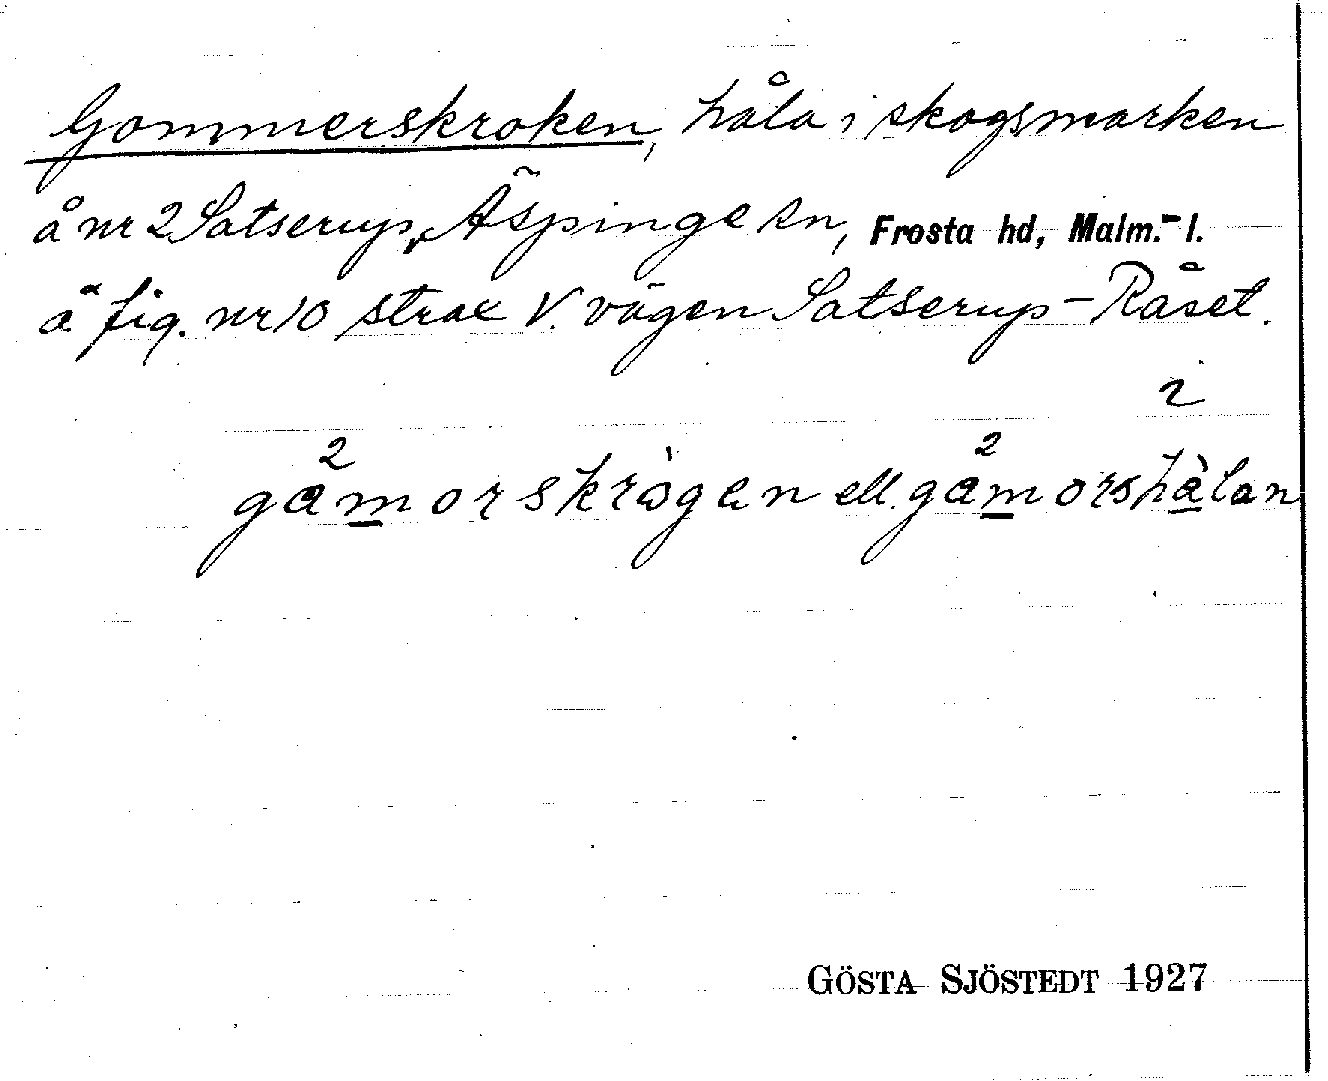 Gommerskroken, håla i skogsmarken
å nr 2 Satserup, Äspinge sn, Frosta hd, Malm.- l.
å fig. nr 10 strax V. vägen Satserup - Råset.
gamorskrògen ell. gamorshàlan
GÖSTA SJÖSTEDT 1927